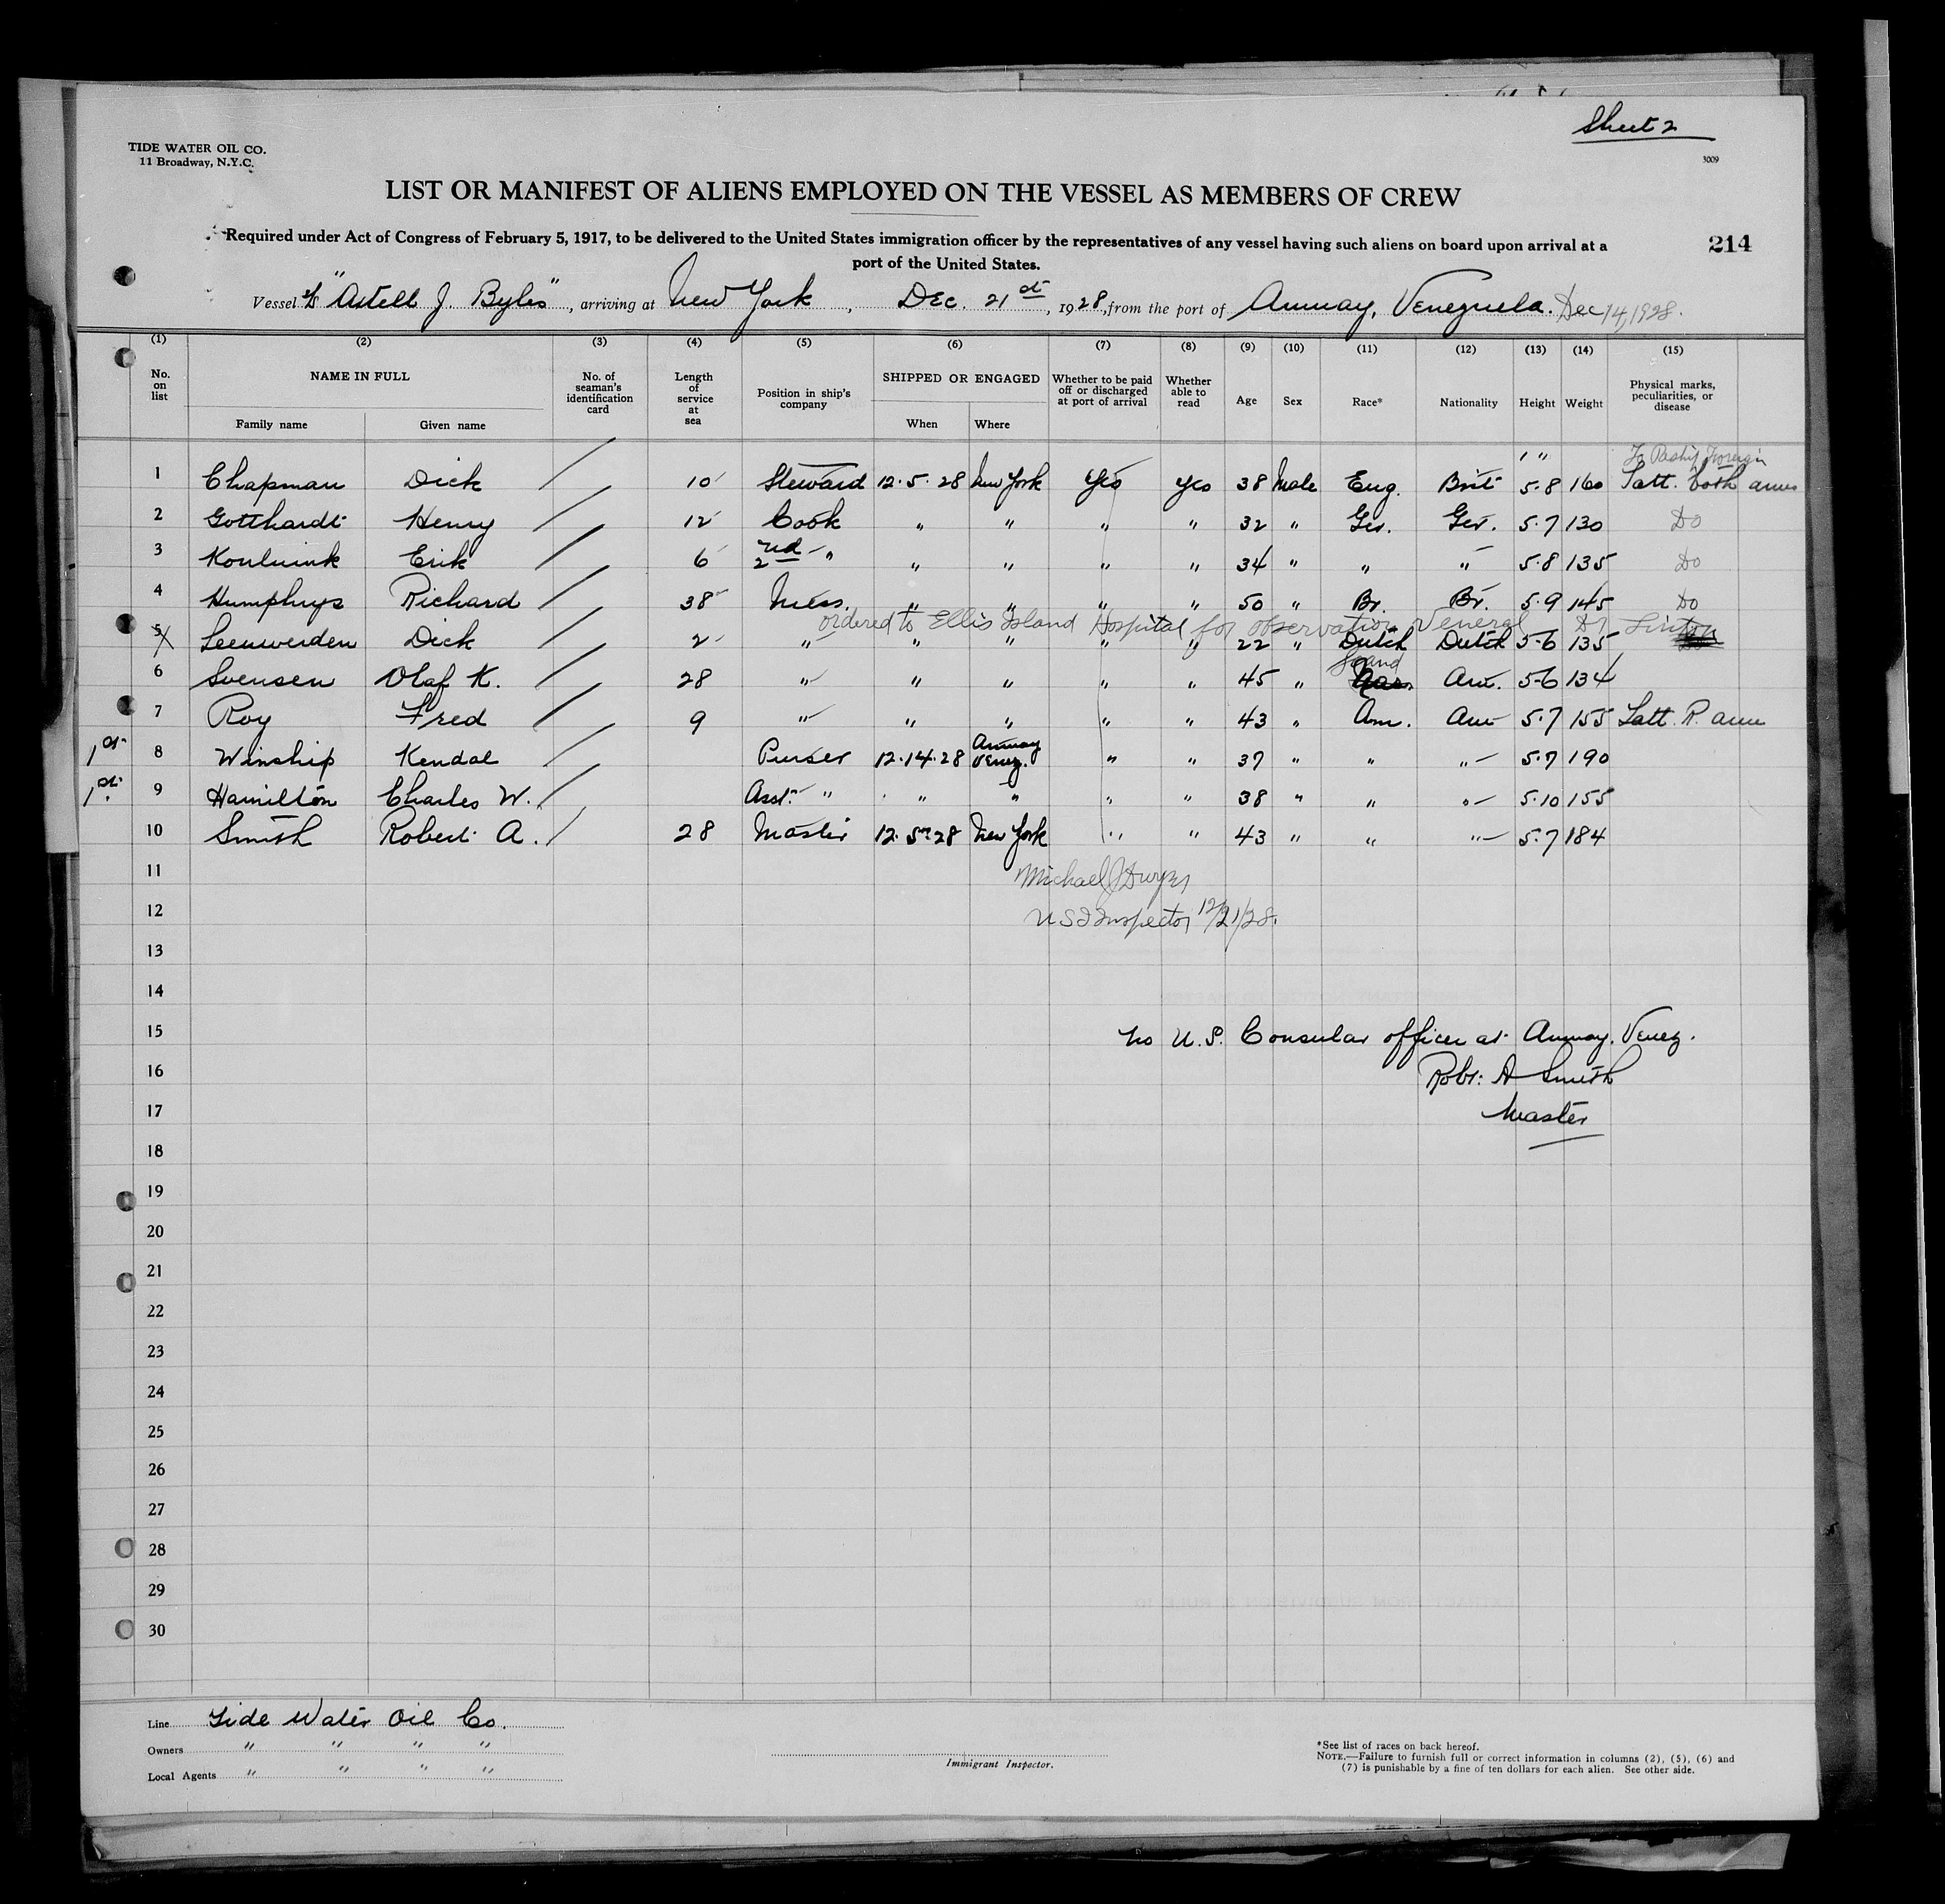 Sheet 2
TIDE WATER OIL CO.
11 Broadway, N.Y.C.
3009
LIST OR MANIFEST OF ALIENS EMPLOYED ON THE VESSEL AS MEMBERS OF CREW
Required under Act of Congress of February 5, 1917, to be delivered to the United States immigration officer by the representatives of any vessel having such aliens on board upon arrival at a
port of the United States.
214
Vessel S/S "Astell J. Byles", arriving at New York, Dec. 21st, 1928, from the port of Amuay, Venezuela. Dec 14, 1928.
(1) (2) (3) (4) (5) (6) (7) (8) (9) (10) (11) (12) (13) (14) (15)
No. on list NAME IN FULL Family name Given name No. of seaman's identification card Length of service at sea Position in ship's company SHIPPED OR ENGAGED When Where Whether to be paid off or discharged at port of arrival Whether able to read Age Sex Race* Nationality Height Weight Physical marks, peculiarities, or disease
' "
1 Chapman Dick 10 Steward 12.5.28 New York Yes Yes 38 Male Eng. Brit 5.8 160 Tatt. both arms
2 Gotthardt Henry 12 Cook " " " " 32 " Ger. Ger. 5.7 130 Do
3 Erik 6 2nd " " " " " 34 " " " 5.8 135 Do
4 Humphrys Richard 38 Mess. " " " " 50 " Br. Br. 5.9 145 Do
ordered to Ellis Island Hospital for observation Veneral
5 Leeuwerden Dick 2 " " " " " 22 " Dutch Dutch 5-6 135
Scand
6 Svensen Olaf K. 28 " " " " " 45 " Am. 5-6 134
7 Roy Fred 9 " " " " " 43 " Am. Am 5.7 155 Tatt. R. arm
1st 8 Winship Kendal Purser 12.14.28 Amuay Venez. " " 37 " " " 5.7 190
1st. 9 Hamilton Charles W. Asst. " " " " " 38 " " " 5.10 155
10 Smith Robert A. 28 Master 12.5.28 New York " " 43 " " " 5.7 184
11 Michael J Dwyer
12 US I Inspector 12/21/28.
13
14
15 No U.S. Consular officer at Amuay, Venez.
16 Robt: A Smith
17 Master
18
19
20
21
22
23
24
25
26
27
28
29
30
Line Tide Water Oil Co.
Owners " " " "
Local Agents " " " "
Immigrant Inspector.
*See list of races on back hereof.
NOTE.—Failure to furnish full or correct information in columns (2), (5), (6) and
(7) is punishable by a fine of ten dollars for each alien. See other side.